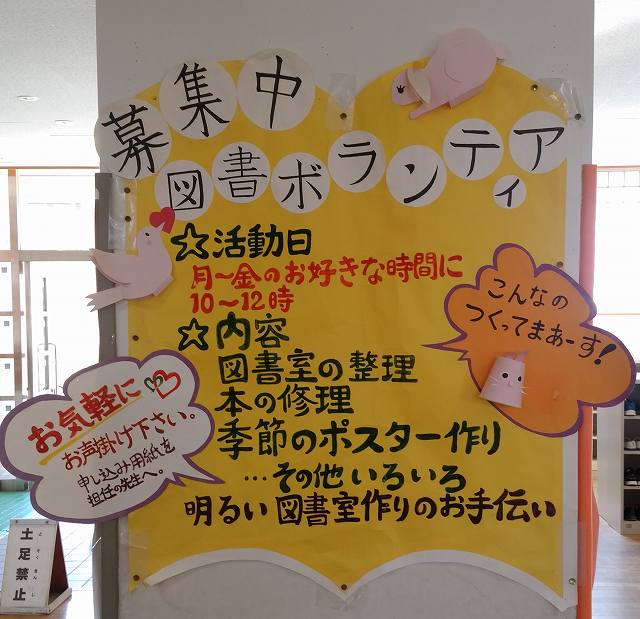 募集中
図書ボランティア
☆活動日
月～金のお好きな時間に
10～12時
☆内容
図書室の整理
本の修理
季節のポスター作り
…その他いろいろ
明るい図書室作りのお手伝い
こんなの
つくってまあーす!
お気軽に
お声掛け下さい。
申し込み用紙を
担任の先生へ。
土足禁止
どそくきんし